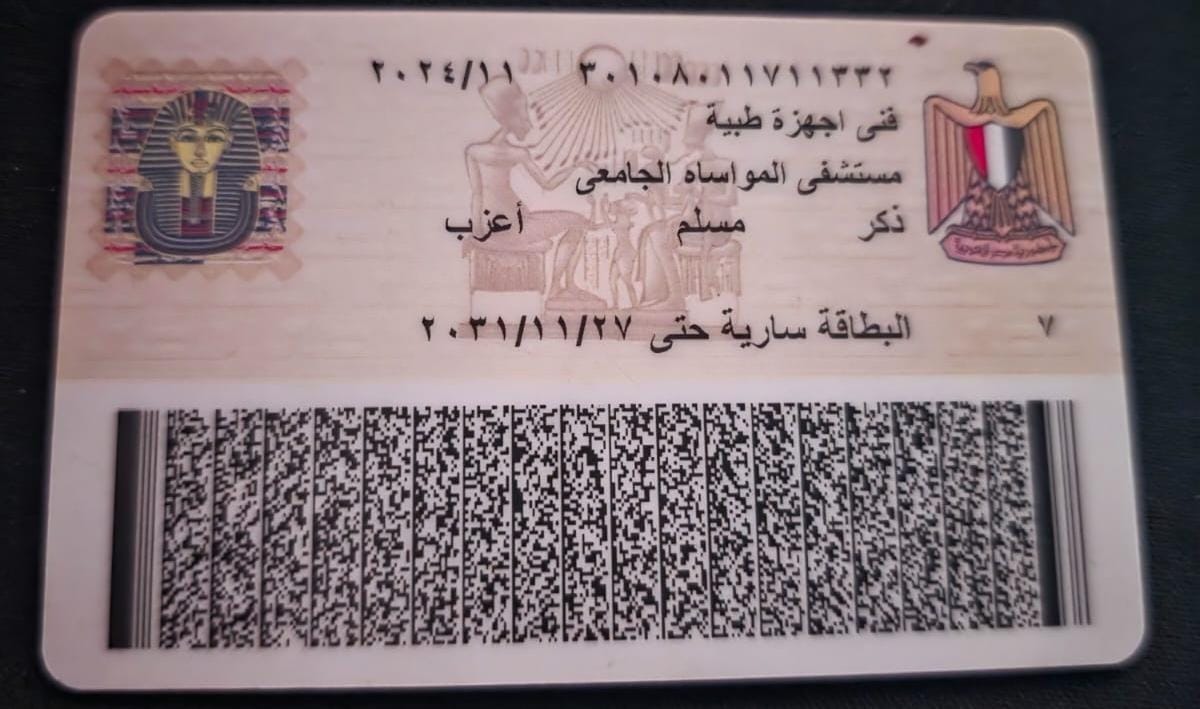 ٣٠١٠٨٠١١٧١١٣٣٢ ٢٠٢٤/١١
فنى اجهزة طبية
مستشفى المواساه الجامعى
ذكر مسلم أعزب
البطاقة سارية حتى ٢٠٣١/١١/٢٧
٧